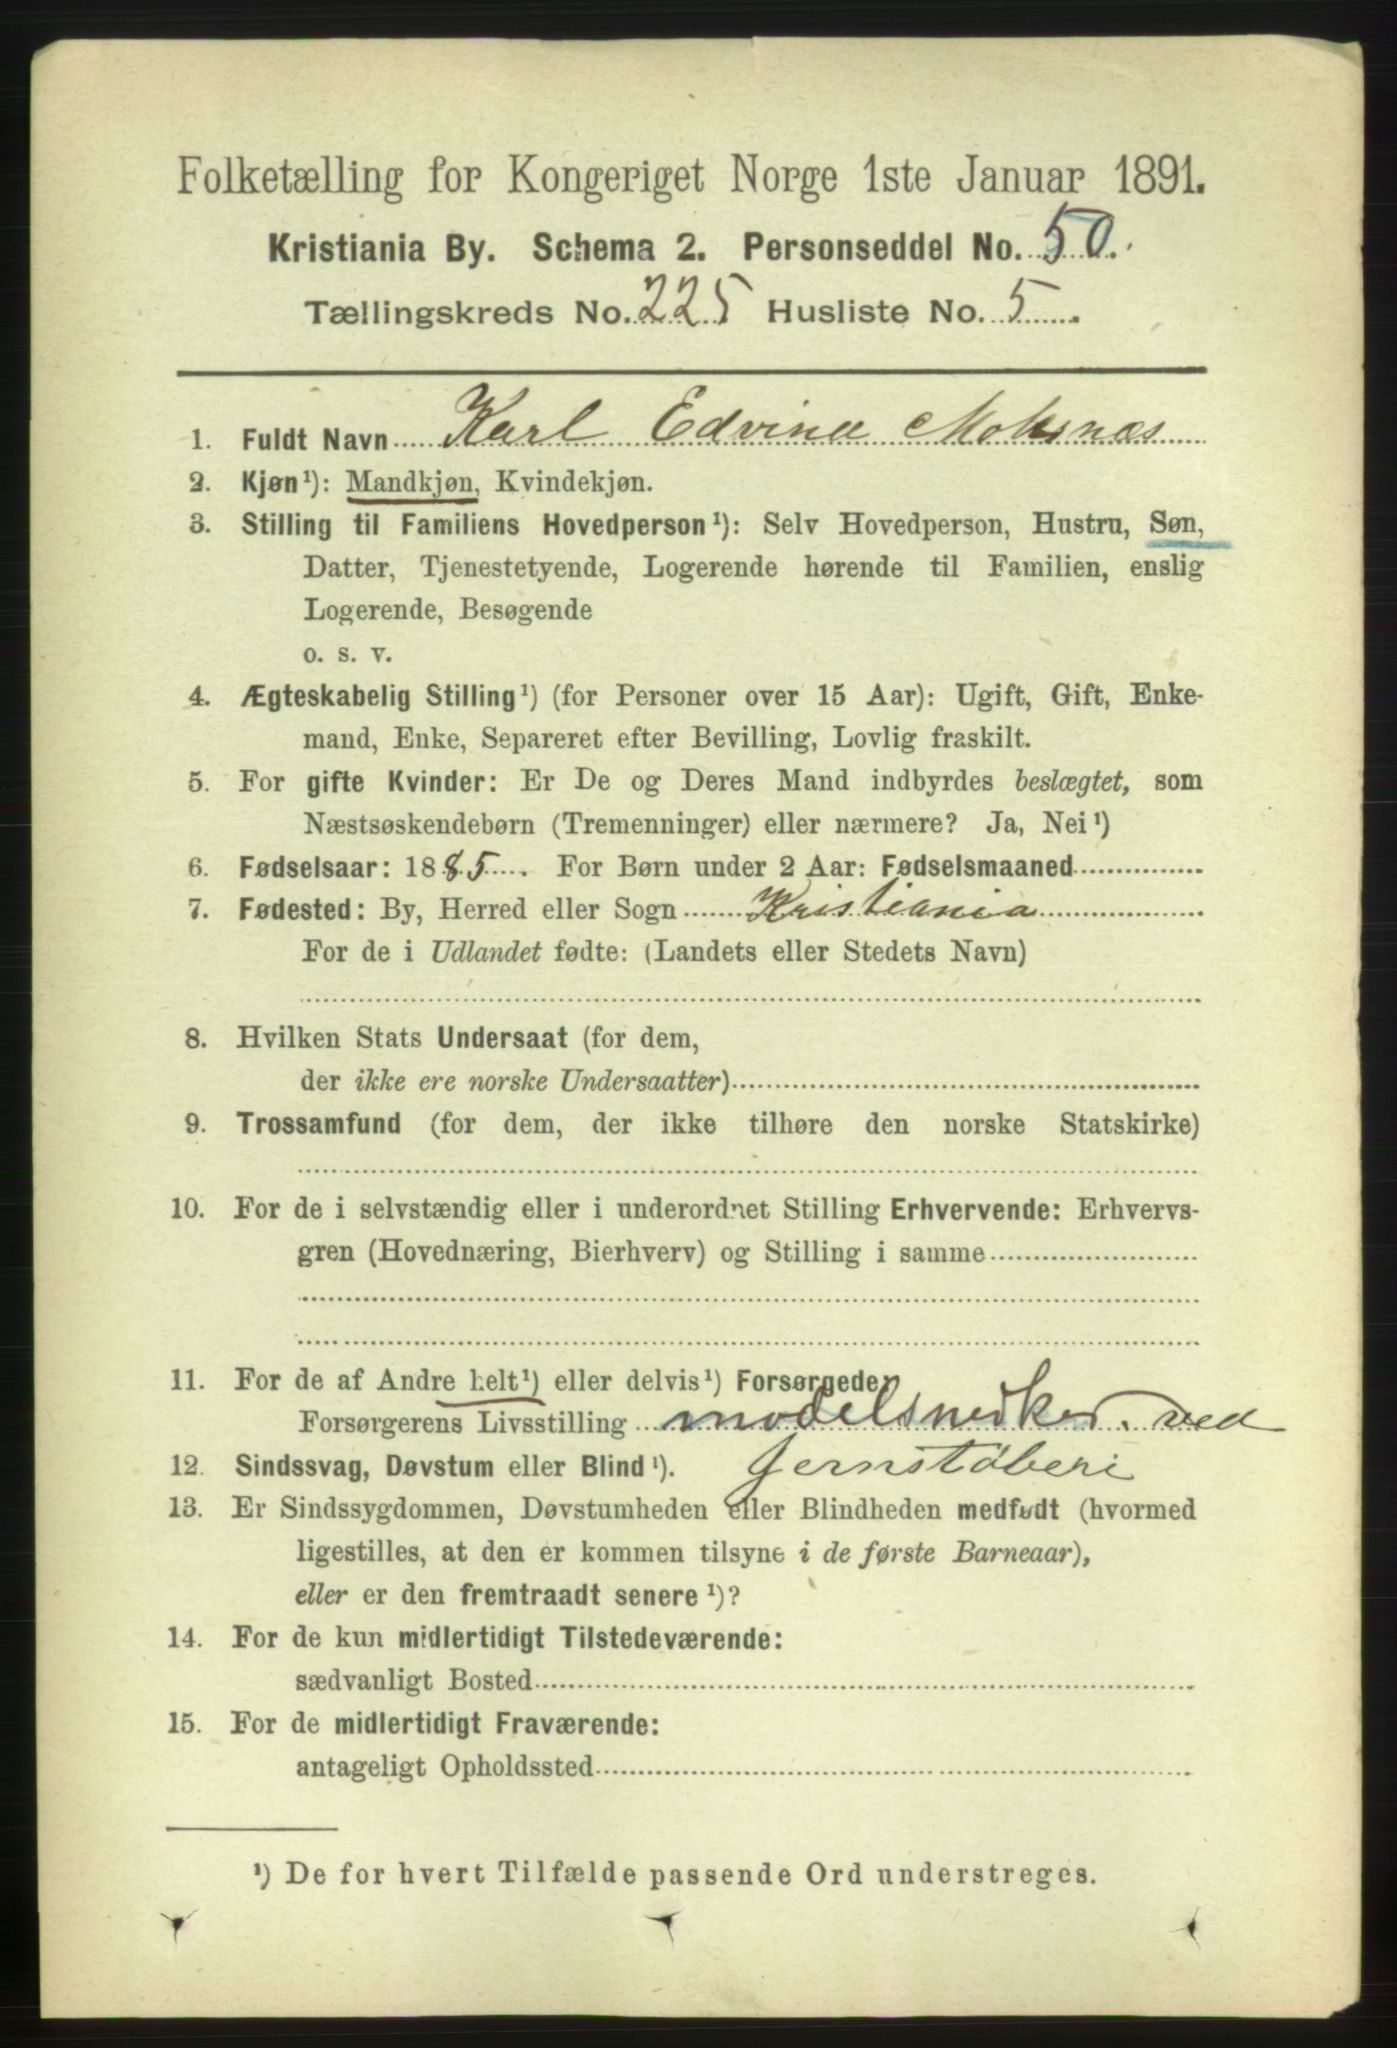 Folketælling for Kongeriget Norge 1ste Januar 1891.
Kristiania By. Schema 2. Personseddel No. 50.
Tællingskreds No. 225 Husliste No. 5
1. Fuldt Navn Karl Edvind Moksnæs
2. Kjøn¹): Mandkjøn, Kvindekjøn.
3. Stilling til Familiens Hovedperson¹): Selv Hovedperson, Hustru, Søn,
Datter, Tjenestetyende, Logerende hørende til Familien, enslig
Logerende, Besøgende
o. s. v.
4. Ægteskabelig Stilling¹) (for Personer over 15 Aar): Ugift, Gift, Enke-
mand, Enke, Separeret efter Bevilling, Lovlig fraskilt.
5. For gifte Kvinder: Er De og Deres Mand indbyrdes beslægtet, som
Næstsøskendebørn (Tremenninger) eller nærmere? Ja, Nei¹)
6. Fødselsaar: 1885. For Børn under 2 Aar: Fødselsmaaned
7. Fødested: By, Herred eller Sogn Kristiania
For de i Udlandet fødte: (Landets eller Stedets Navn)
8. Hvilken Stats Undersaat (for dem,
der ikke ere norske Undersaatter)
9. Trossamfund (for dem, der ikke tilhøre den norske Statskirke)
10. For de i selvstændig eller i underordnet Stilling Erhvervende: Erhvervs-
gren (Hovednæring, Bierhverv) og Stilling i samme
11. For de af Andre helt¹) eller delvis¹) Forsørgede:
Forsørgerens Livsstilling modelsnedker. ved
12. Sindssvag, Døvstum eller Blind¹). Jernstøberi
13. Er Sindssygdommen, Døvstumheden eller Blindheden medfødt (hvormed
ligestilles, at den er kommen tilsyne i de første Barneaar),
eller er den fremtraadt senere¹)?
14. For de kun midlertidigt Tilstedeværende:
sædvanligt Bosted
15. For de midlertidigt Fraværende:
antageligt Opholdssted
¹) De for hvert Tilfælde passende Ord understreges.